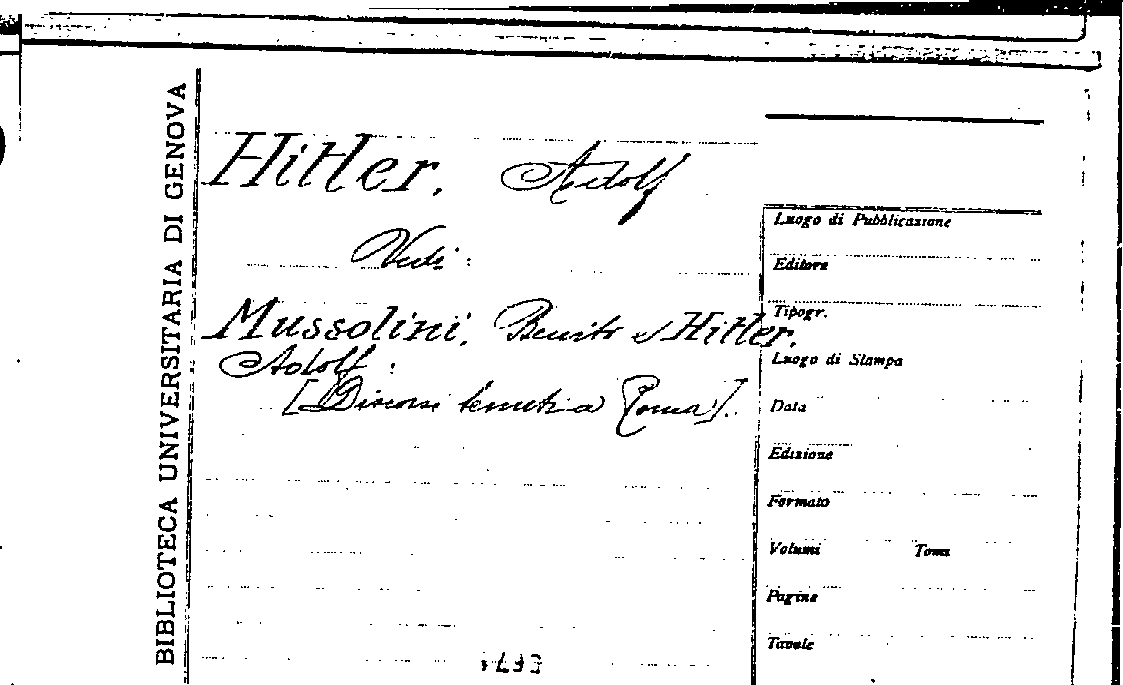 BIBLIOTECA UNIVERSITARIA DI GENOVA
Hitler, Adolf
Vedi:
Mussolini, Benito e Hitler,
Adolf:
[Discorsi tenuti a Roma].
Luogo di Pubblicazione
Editore
Tipogr.
Luogo di Stampa
Data
Edizione
Formato
Volumi Tomi
Pagine
Tavole